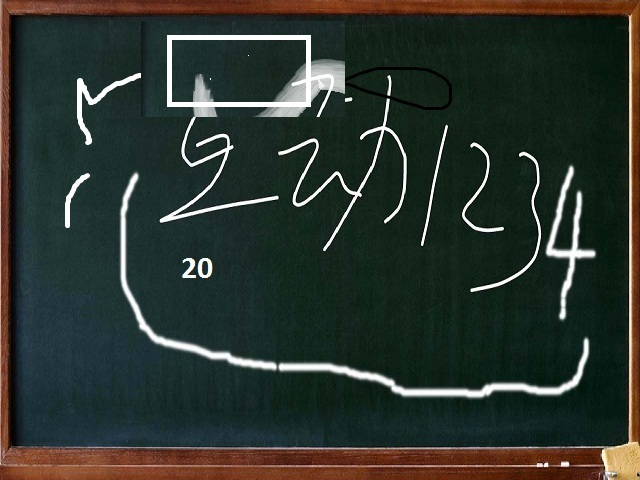 互动1234
20